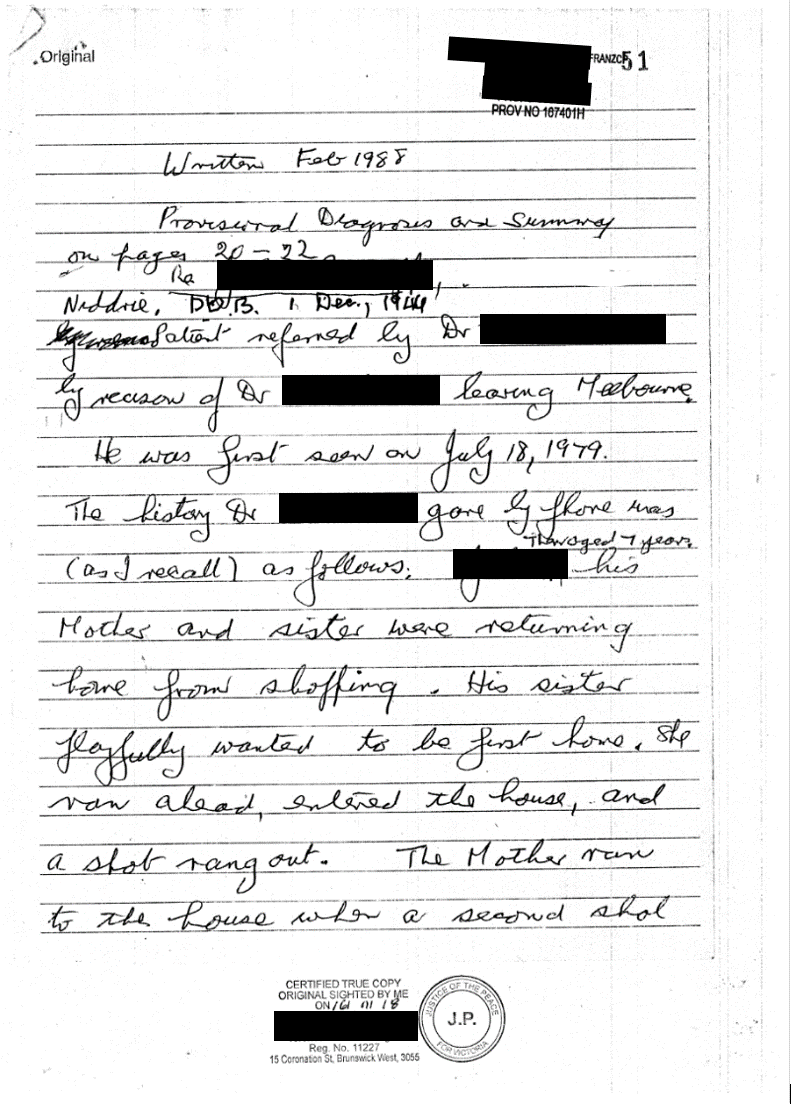 Original
FRANZCP 51
PROV NO 167401H
Written Feb 1988
Provisional Diagnoses and Summary
on pages 20 – 22
Re
Niddrie. D.O.B. 1 Dec., 1944
Patient referred by Dr
by reason of Dr leaving Melbourne.
He was first seen on July 18, 1979.
The history Dr gave by phone was
Then aged 7 years.
(as I recall) as follows: his
Mother and sister were returning
home from shopping. His sister
playfully wanted to be first home. She
ran ahead, entered the house, and
a shot rang out. The Mother ran
to the house when a second shot
CERTIFIED TRUE COPY
ORIGINAL SIGHTED BY ME
ON
Reg. No. 11227
15 Coronation St, Brunswick West, 3055
JUSTICE OF THE PEACE
J.P.
FOR VICTORIA